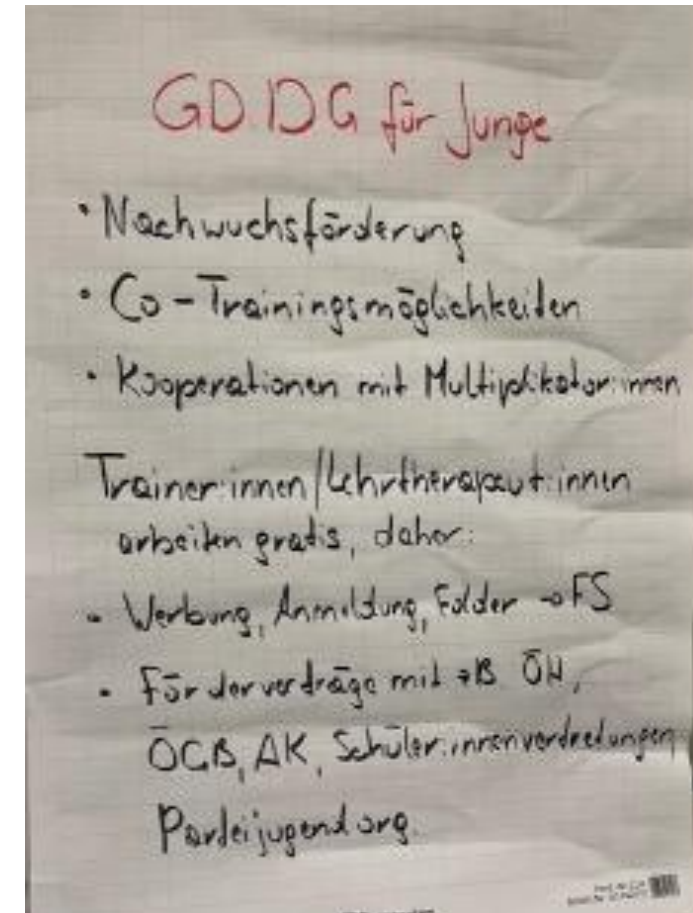 GD.DG für Junge
• Nachwuchsförderung
• Co-Trainingsmöglichkeiten
• Kooperationen mit Multiplikator:innen
Trainer:innen/Lehrtherapeut:innen
arbeiten gratis, daher:
- Werbung, Anmeldung, Folder → FS
• Förderverträge mit zB ÖH,
ÖGB, AK, Schüler:innenvertretungen,
Parteijugendorg.